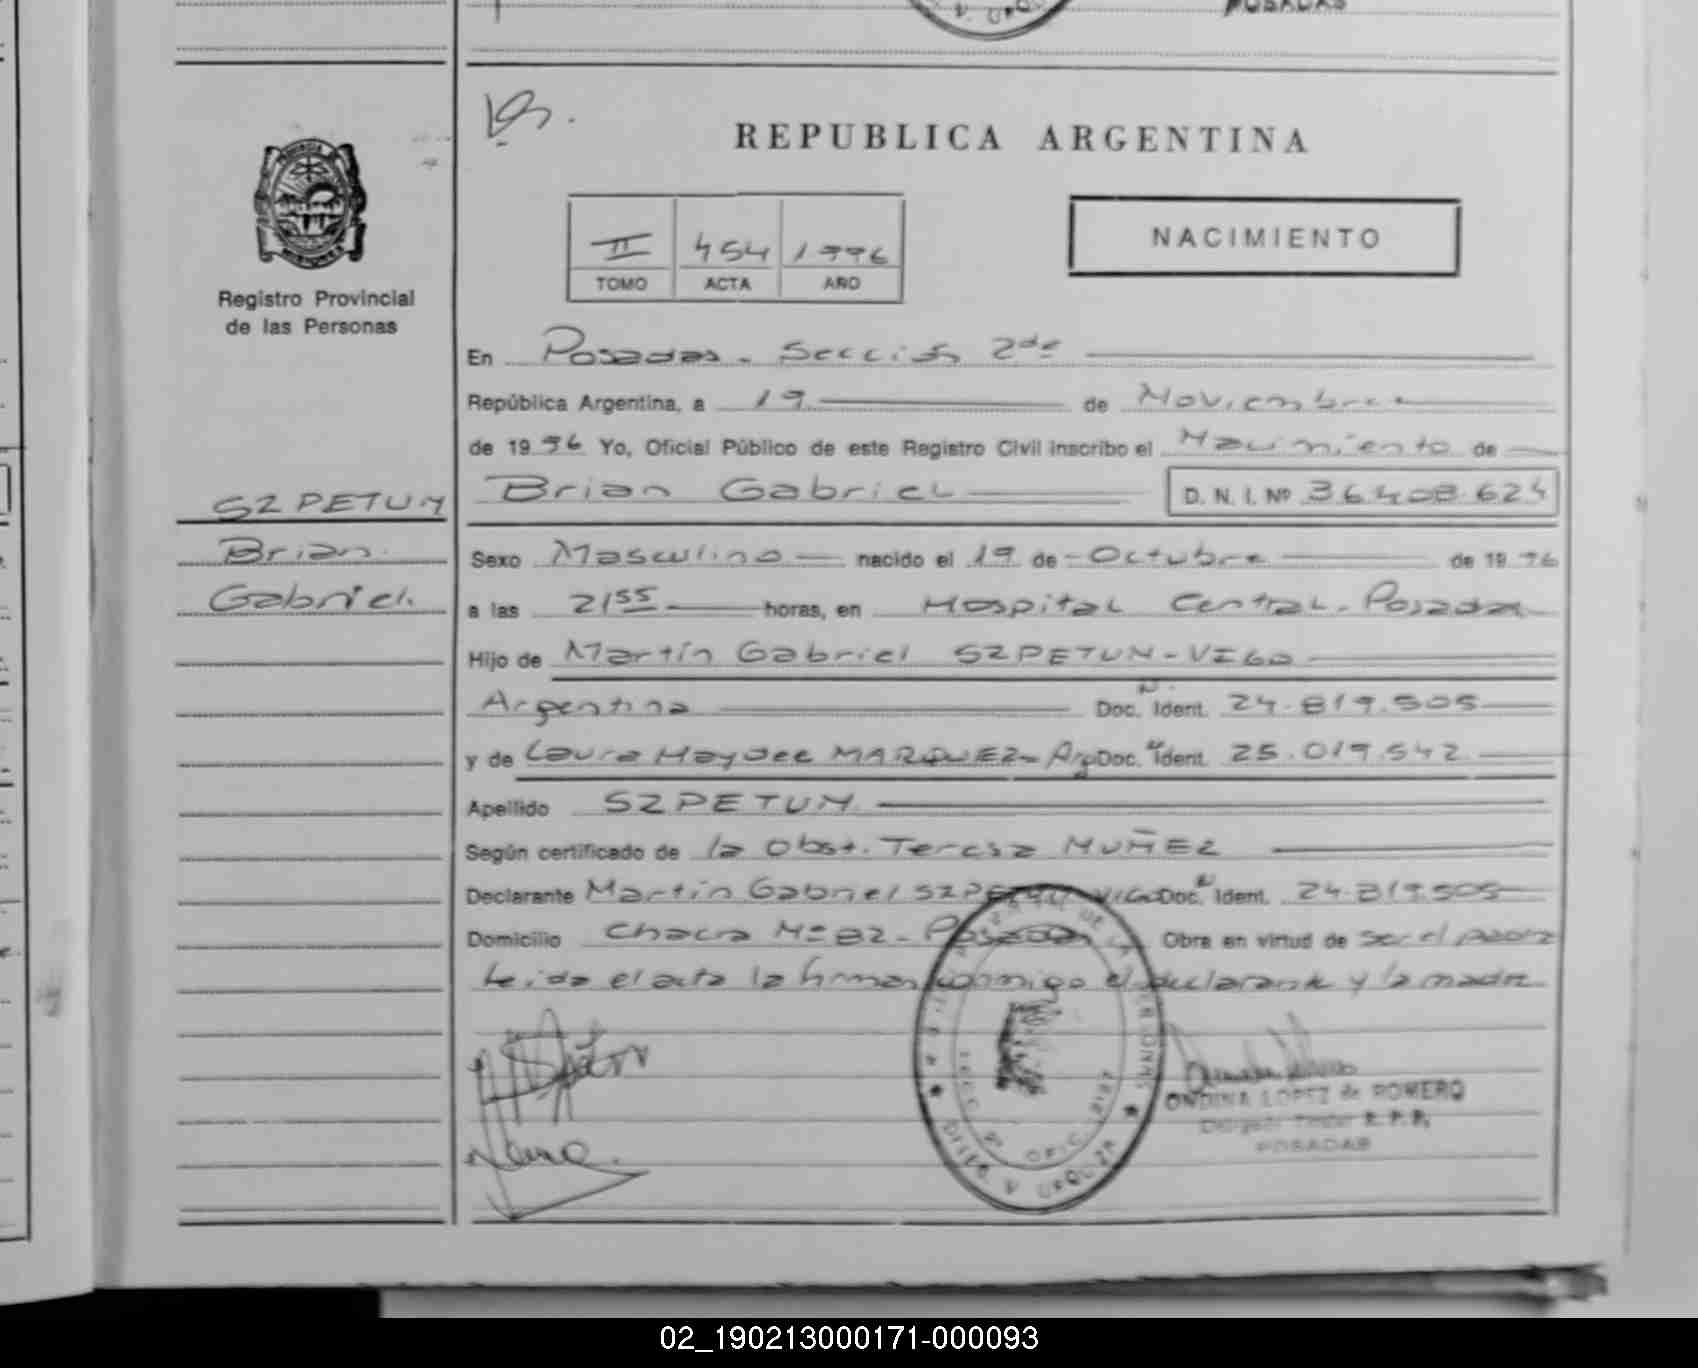 POSADAS
REPUBLICA ARGENTINA
II 454 1996
TOMO ACTA AÑO
NACIMIENTO
Registro Provincial
de las Personas
En Posadas - Sección 2da
República Argentina, a 19 de Noviembre
de 1996 Yo, Oficial Público de este Registro Civil inscribo el Nacimiento de
SZPETUN
Brian
Gabriel.
Brian Gabriel D. N. I. Nº 36.408.624
Sexo Masculino nacido el 19 de Octubre de 1996
a las 21 55 horas, en Hospital Central - Posadas
Hijo de Martín Gabriel SZPETUN - VIGO
Argentina Doc. Ident. 24.819.505
y de Laura Haydee MARQUEZ - Arg Doc. Ident. 25.019.542
Apellido SZPETUN
Según certificado de la Obst. Teresa MUÑEZ
Declarante Martín Gabriel SZPETUN VIGO Doc. Ident. 24.819.505
Domicilio Chacra Nº 82 - Posadas Obra en virtud de ser el padre
Leida el acta la firman conmigo el declarante y la madre
ONDINA LOPEZ de ROMERO
R. P. P.
POSADAS
SECC 2ª OFIC. 2187
DELEG. V. URQUIZA
02_190213000171-000093